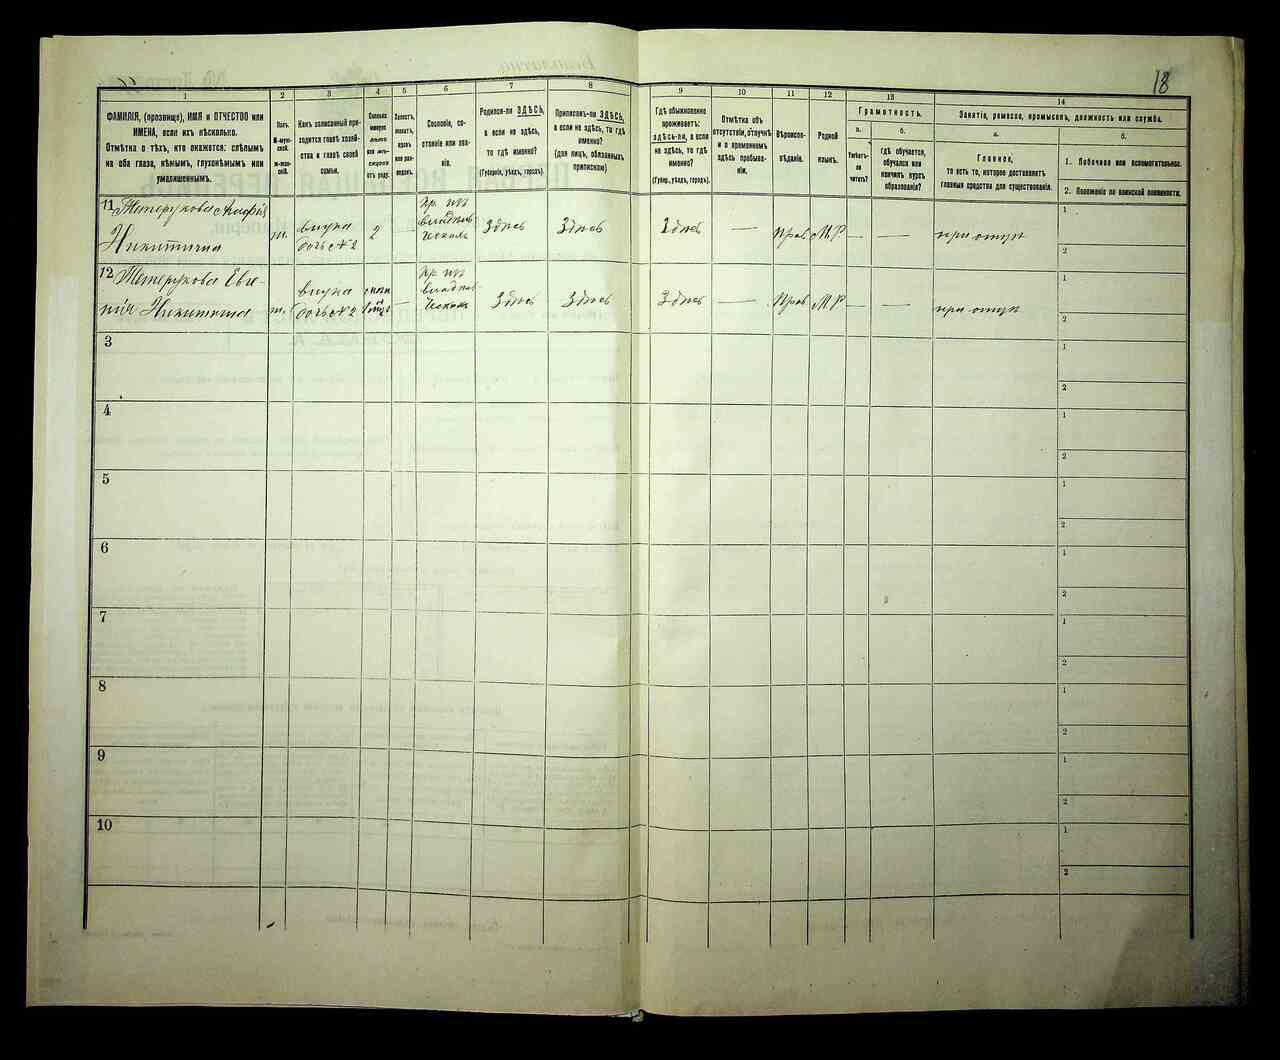 18
1
2
3
4
5
6
7
8
9
10
11
12
13
14
ФАМИЛІЯ, (прозвище), ИМЯ и ОТЧЕСТВО или
ИМЕНА, если ихъ нѣсколько.
Отмѣтка о тѣхъ, кто окажется: слѣпымъ
на оба глаза, нѣмымъ, глухонѣмымъ или
умалишеннымъ.
Полъ.
М-муж-
ской.
Ж-жен-
скій.
Какъ записанный при-
ходится главѣ хозяй-
ства и главѣ своей
семьи.
Сколько
минуло
лѣтъ
или мѣ-
сяцевъ
отъ роду.
Холостъ,
женатъ,
вдовъ
или раз-
веденъ.
Сословіе, со-
стояніе или зва-
ніе.
Родился-ли ЗДѢСЬ,
а если не здѣсь,
то гдѣ именно?
(Губернія, уѣздъ, городъ).
Приписанъ-ли ЗДѢСЬ,
а если не здѣсь, то гдѣ
именно?
(для лицъ, обязанныхъ
припискою)
Гдѣ обыкновенно
проживаетъ:
здѣсь-ли, а если
не здѣсь, то гдѣ
именно?
(Губер., уѣздъ, городъ).
Отмѣтка объ
отсутствіи, отлучкѣ
и о временномъ
здѣсь пребыва-
ніи.
Вѣроиспо-
вѣданіе.
Родной
языкъ.
Грамотность.
а.
Умѣетъ-
ли
читать?
б.
гдѣ обучается,
обучался или
кончилъ курсъ
образованія?
Занятіе, ремесло, промыселъ, должность или служба.
а.
Главное,
то есть то, которое доставляетъ
главныя средства для существованія.
б.
1. Побочное или вспомогательное.
2. Положеніе по воинской повинности.
11 Тетерукова
Никитична
ж.
внука
дочь №2
2
Кр. из
Здѣсь
Здѣсь
Здѣсь
—
Прав
М Р
—
—
при отцѣ
1
2
12 Тетерукова Евге-
нія Никитична
ж.
внука
дочь №2
—
Кр. из
Здѣсь
Здѣсь
Здѣсь
—
Прав
М Р
—
—
при отцѣ
1
2
3
1
2
4
1
2
5
1
2
6
1
2
7
1
2
8
1
2
9
1
2
10
1
2